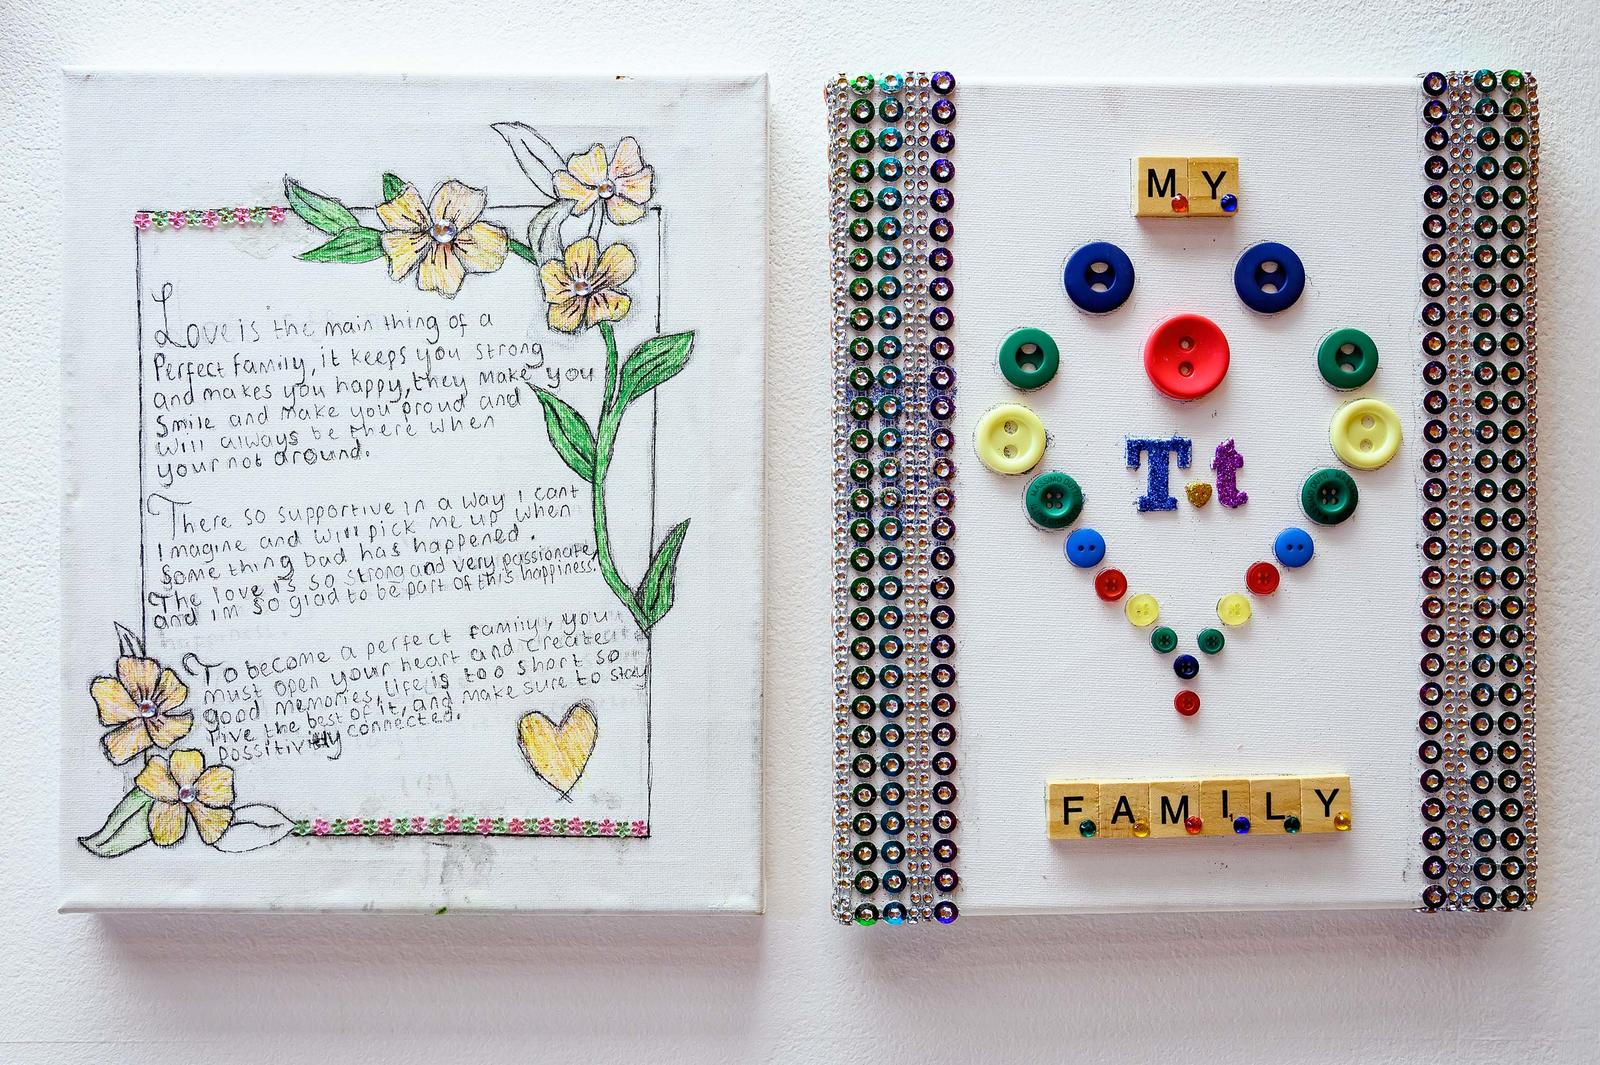 Love is the main thing of a
Perfect family, it keeps you strong
and makes you happy, they make you
smile and make you proud and
will always be there when
your not around.
There so supportive in a way I cant
imagine and will pick me up when
something bad has happened.
The love is so strong and very passionate,
and im so glad to be part of this happiness.
To become a perfect family, you
must open your heart and create
good memories, life is too short so
live the best of it, and make sure to stay
possitively connected.
MY
T.t
FAMILY